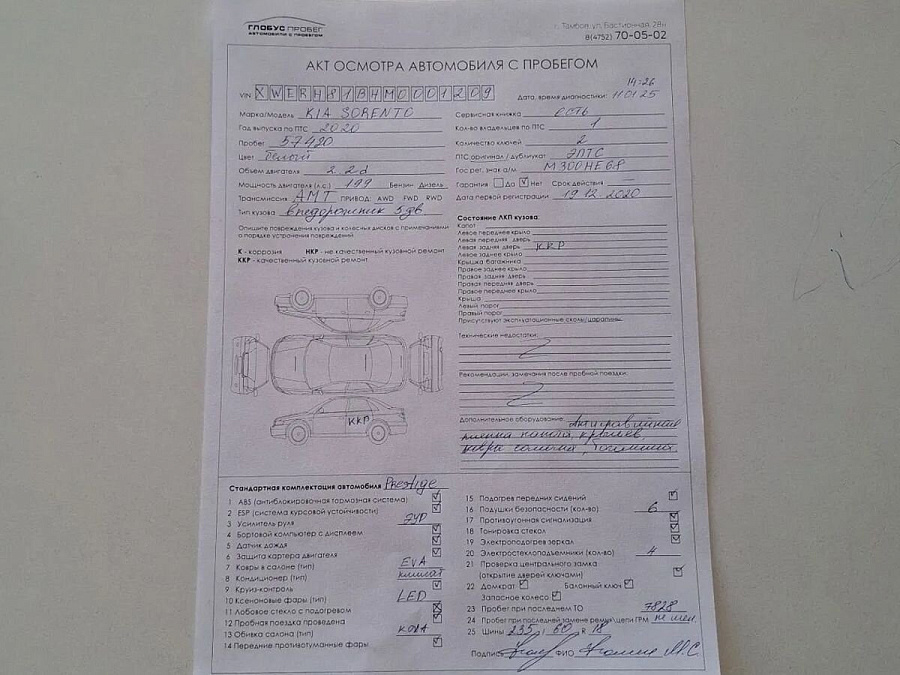 ГЛОБУС ПРОБЕГ
АВТОМОБИЛИ С ПРОБЕГОМ
г. Тамбов, ул. Бастионная, 28н
8(4752) 70-05-02
АКТ ОСМОТРА АВТОМОБИЛЯ С ПРОБЕГОМ
VIN XWERH81BHM0001209
14:26
Дата, время диагностики: 11.01.25
Марка/Модель KIA SORENTO
Год выпуска по ПТС 2020
Пробег 57420
Цвет белый
Объем двигателя 2.2d
Мощность двигателя (л.с.) 199 Бензин Дизель
Трансмиссия АМТ ПРИВОД: AWD FWD RWD
Тип кузова внедорожник 5дв
Опишите повреждения кузова и колесных дисков с примечаниями
о порядке устранения повреждений
К - коррозия НКР - не качественный кузовной ремонт
ККР - качественный кузовной ремонт
ККР
Сервисная книжка есть
Кол-во владельцев по ПТС 1
Количество ключей 2
ПТС оригинал / дубликат ЭПТС
Гос рег. знак а/м М300НЕ68
Гарантия Да Нет Срок действия —
Дата первой регистрации 19.12.2020
Состояние ЛКП кузова:
Капот
Левое переднее крыло
Левая передняя дверь
Левая задняя дверь ККР
Левое заднее крыло
Крышка багажника
Правое заднее крыло
Правая задняя дверь
Правая передняя дверь
Правое переднее крыло
Крыша
Левый порог
Правый порог
Присутствуют эксплуатационные сколы-царапины
Технические недостатки:
Рекомендации, замечания после пробной поездки:
Дополнительное оборудование: Антигравийная
пленка капота, крыльев,
ковры салона,
Стандартная комплектация автомобиля Prestige
1 ABS (антиблокировочная тормозная система)
2 ESP (система курсовой устойчивости)
3 Усилитель руля ЭУР
4 Бортовой компьютер с дисплеем
5 Датчик дождя
6 Защита картера двигателя
7 Ковры в салоне (тип) EVA
8 Кондиционер (тип) климат
9 Круиз-контроль
10 Ксеноновые фары (тип) LED
11 Лобовое стекло с подогревом
12 Пробная поездка проведена
13 Обивка салона (тип) кожа
14 Передние противотуманные фары
15 Подогрев передних сидений
16 Подушки безопасности (кол-во) 6
17 Противоугонная сигнализация
18 Тонировка стекол
19 Электроподогрев зеркал
20 Электростеклоподъемники (кол-во) 4
21 Проверка центрального замка
(открытие дверей ключами)
22 Домкрат Балонный ключ
Запасное колесо
23 Пробег при последнем ТО 7828
24 Пробег при последней замене ремня/цепи ГРМ не мен.
25 Шины 235 / 60 R 18
Подпись ФИО М.С